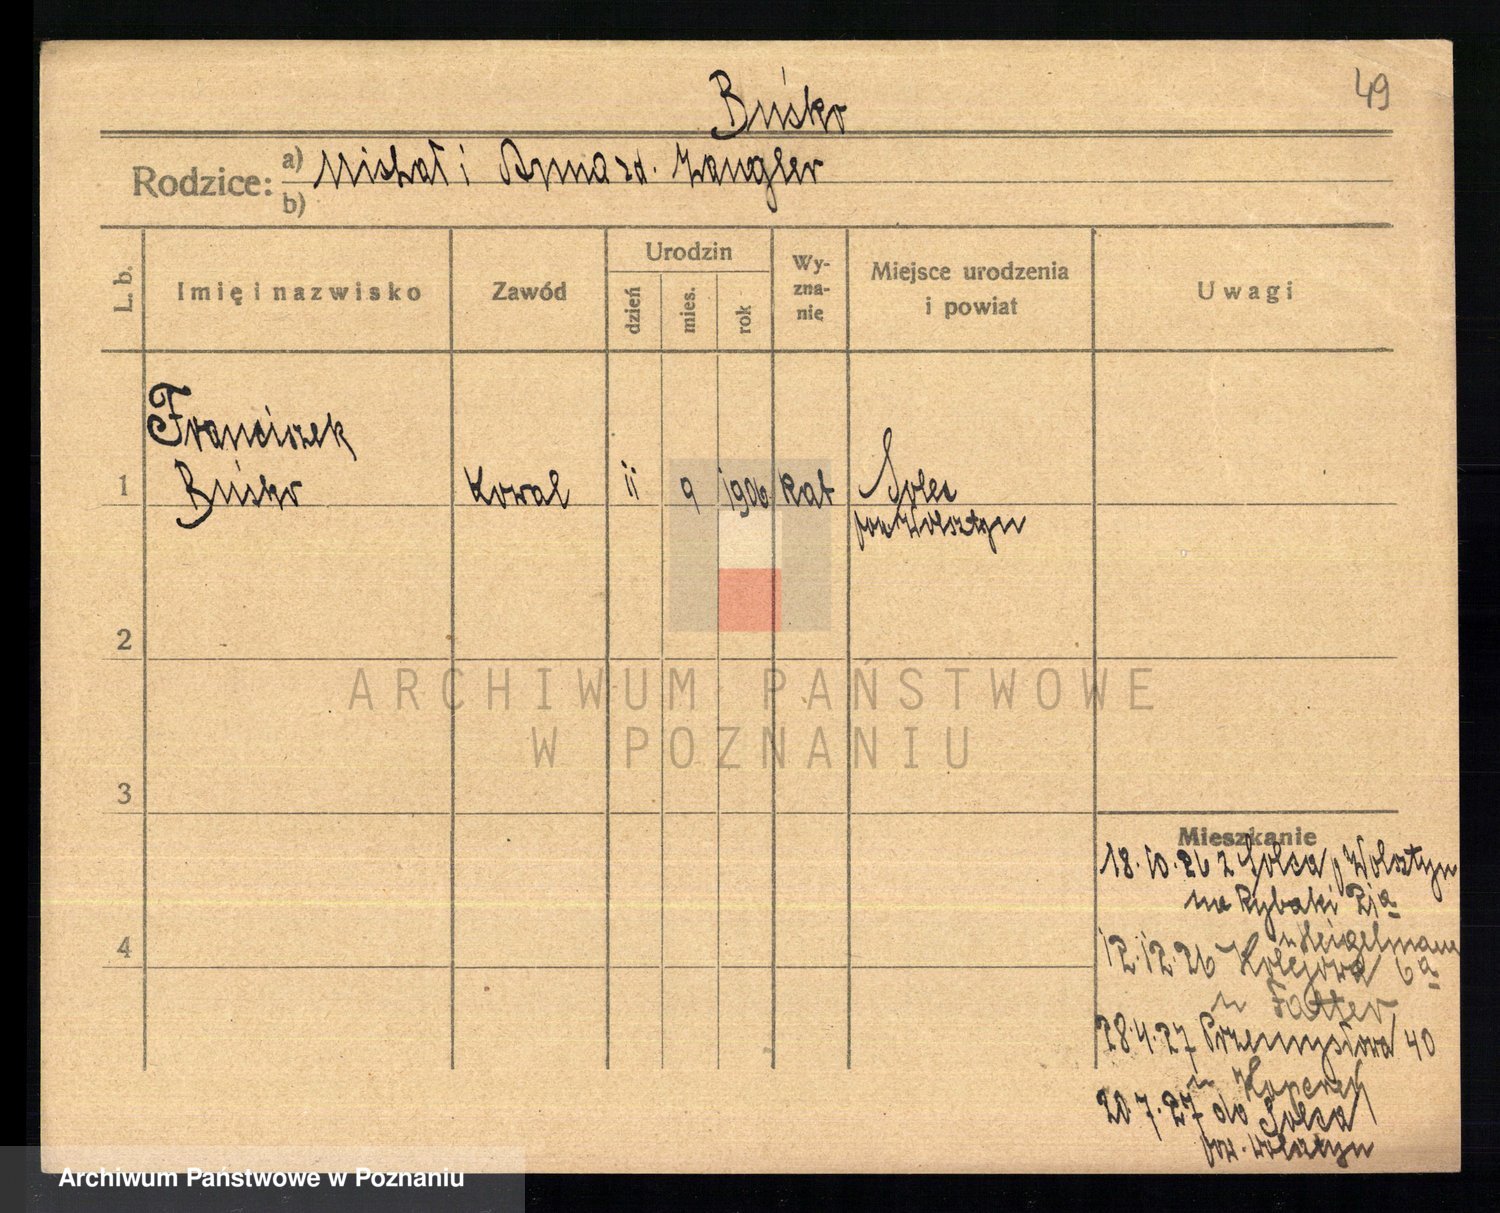 49
Buśko
Rodzice: a) Michał i Anna zd. Zangler
b)
L. b.
Imię i nazwisko
Zawód
Urodzin
dzień
mies.
rok
Wy-
zna-
nię
Miejsce urodzenia
i powiat
Uwagi
Franciszek
1 Buśko Kowal 11 9 1906 kat Solec
pow Wolsztyn
2
3
4
ARCHIWUM PAŃSTWOWE
W POZNANIU
Mieszkanie
18.10.26 z Solca p Wolsztyn
na Rybaki 21a
u Heigelmann
12.12.26 Kolejowa 6a
u Fatter
28.4.27 Przemysłowa 40
u
20.7.27 do Solca
pow. Wolsztyn
Archiwum Państwowe w Poznaniu